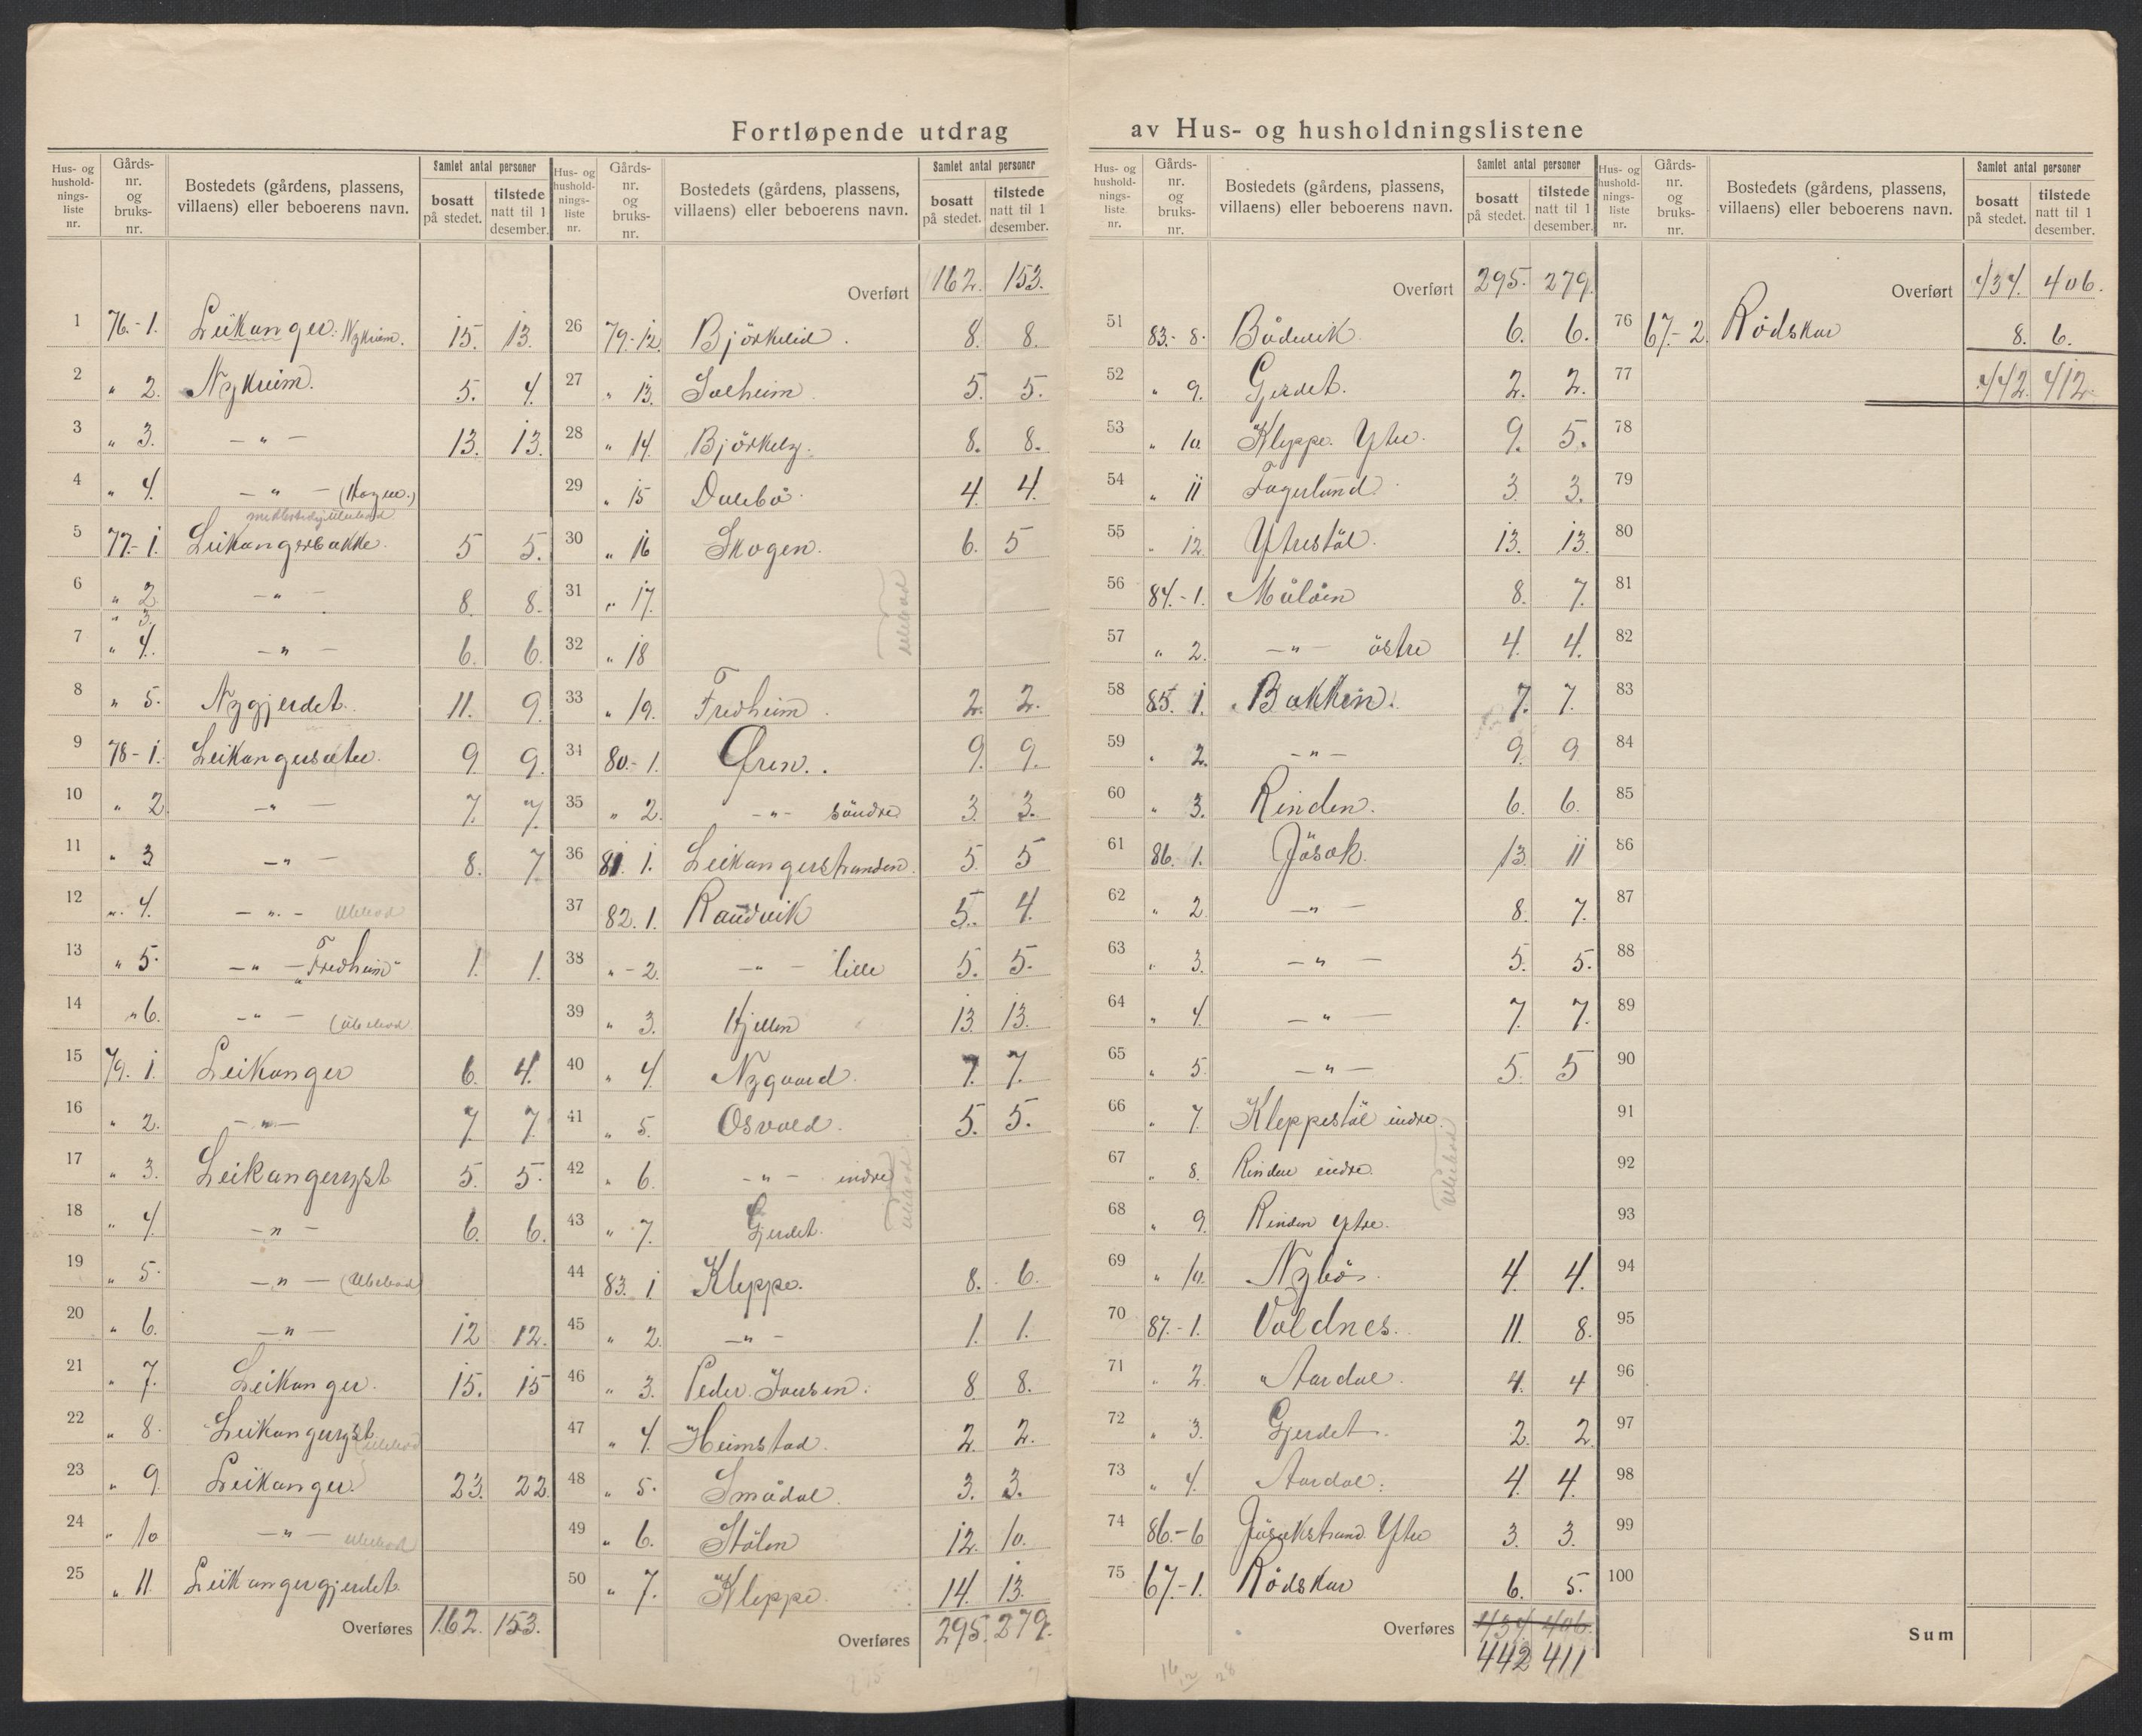 Fortløpende utdrag av Hus- og husholdningslistene
Hus- og hushold-nings-liste nr. Gårds-nr. og bruks-nr. Bostedets (gårdens, plassens, villaens) eller beboerens navn. Samlet antal personer bosatt på stedet. tilstede natt til 1 desember.
1 76.-1. Leikanger. Nykreim. 15. 13.
2 " 2. Nykreim. 5. 4.
3 " 3. — " — 13. 13.
4 " 4. — " — (Hagen.)
5 77.-1. Leikangerbakke. 5 5.
6 " 2 — " — 8. 8.
" 3.
7 " 4. — " — 6. 6.
8 " 5. Nygjerdet. 11. 9.
9 78-1. Leikangersæter. 9. 9.
10 " 2. — " — 7. 7.
11 " 3 — " — 8. 7
12 " 4. — " — Ubebod
13 " 5. — " — "Fredheim" 1. 1.
14 " 6. — " — (Ubebod
15 79. 1. Leikanger 6. 4.
16 " 2. — " — 7. 7.
17 " 3. Leikangeryst 5. 5.
18 " 4. — " — 6. 6.
19 " 5. — " — (Ubebod)
20 " 6. — " — 12 12.
21 " 7. Leikanger. 15. 15
22 " 8. Leikangeryst (Ubebod
23 " 9. Leikanger 23. 22
24 " 10 — " — Ubebod
25 " 11. Leikangergjerdet.
Overføres 162. 153.
Hus- og hushold-nings-liste nr. Gårds-nr. og bruks-nr. Bostedets (gårdens, plassens, villaens) eller beboerens navn. Samlet antal personer bosatt på stedet. tilstede natt til 1 desember.
Overført 162. 153.
26 79.-12. Björkelid. 8. 8.
27 " 13. Solheim. 5. 5.
28 " 14. Björkely. 8. 8.
29 " 15 Dalebö. 4. 4.
30 " 16 Skogen. 6. 5
31 " 17. Ubebod
32 " 18
33 " 19. Fredheim. 2. 2.
34 80.-1. Gren.. 9. 9.
35 " 2. — " — söndre 3. 3.
36 81. 1. Leikangerstranden. 5. 5
37 82. 1. Raudvik 5. 4.
38 " - 2. — " — lille 5. 5.
39 " 3. Hjellen 13. 13.
40 " 4. Nygaard. 7. 7.
41 " 5. Osvald. 5. 5.
42 " 6. — " — indre Ubebod
43 " 7. Gjerdet.
44 83. 1 Kleppe. 8. 6.
45 " 2. — " — 1. 1.
46 " 3. Peder Iversen. 8 8.
47 " 4. Heimstad. 2. 2.
48 " 5. Smådal. 3. 3.
49 " 6. Stölen 12. 10.
50 " 7. Kleppe. 14. 13.
Overføres 295. 279.
Hus- og hushold-nings-liste nr. Gårds-nr. og bruks-nr. Bostedets (gårdens, plassens, villaens) eller beboerens navn. Samlet antal personer bosatt på stedet. tilstede natt til 1 desember.
Overført 295. 279.
51 83.- 8. Bådsvik. 6. 6.
52 " 9. Gjerdet. 2. 2.
53 " 10. Kleppe. Ytre. 9. 5.
54 " 11 Fagerlund. 3. 3.
55 " 12. Ytrestöl. 13. 13.
56 84.-1. Målöin 8. 7.
57 " 2. — " — östre 4. 4.
58 85. 1. Bakken. 7. 7.
59 " 2. — " — 9. 9
60 " 3. Rinden. 6. 6.
61 86. 1. Jösok. 13. 11
62 " 2. — " — 8. 7.
63 " 3. — " — 5. 5.
64 " 4. — " — 7. 7.
65 " 5. — " — 5. 5
66 " 7. Kleppestöl indre. Ubebod
67 " 8. Rinden indre.
68 " 9. Rinden ytre.
69 " 10. Nybö. 4. 4.
70 87.-1. Voldnes. 11. 8.
71 " 2. Aardal. 4. 4
72 " 3. Gjerdet. 2. 2.
73 " 4. Aardal. 4. 4.
74 86.-6 Jösokstrand Ytre 3. 3.
75 67.-1. Rödskar 6. 5.
Overføres 434. 406.
442 411
16 12 28
Hus- og hushold-nings-liste nr. Gårds-nr. og bruks-nr. Bostedets (gårdens, plassens, villaens) eller beboerens navn. Samlet antal personer bosatt på stedet. tilstede natt til 1 desember.
Overført 434. 406.
76 67.- 2. Rödskar 8. 6.
77 442. 412.
78
79
80
81
82
83
84
85
86
87
88
89
90
91
92
93
94
95
96
97
98
99
100
Sum